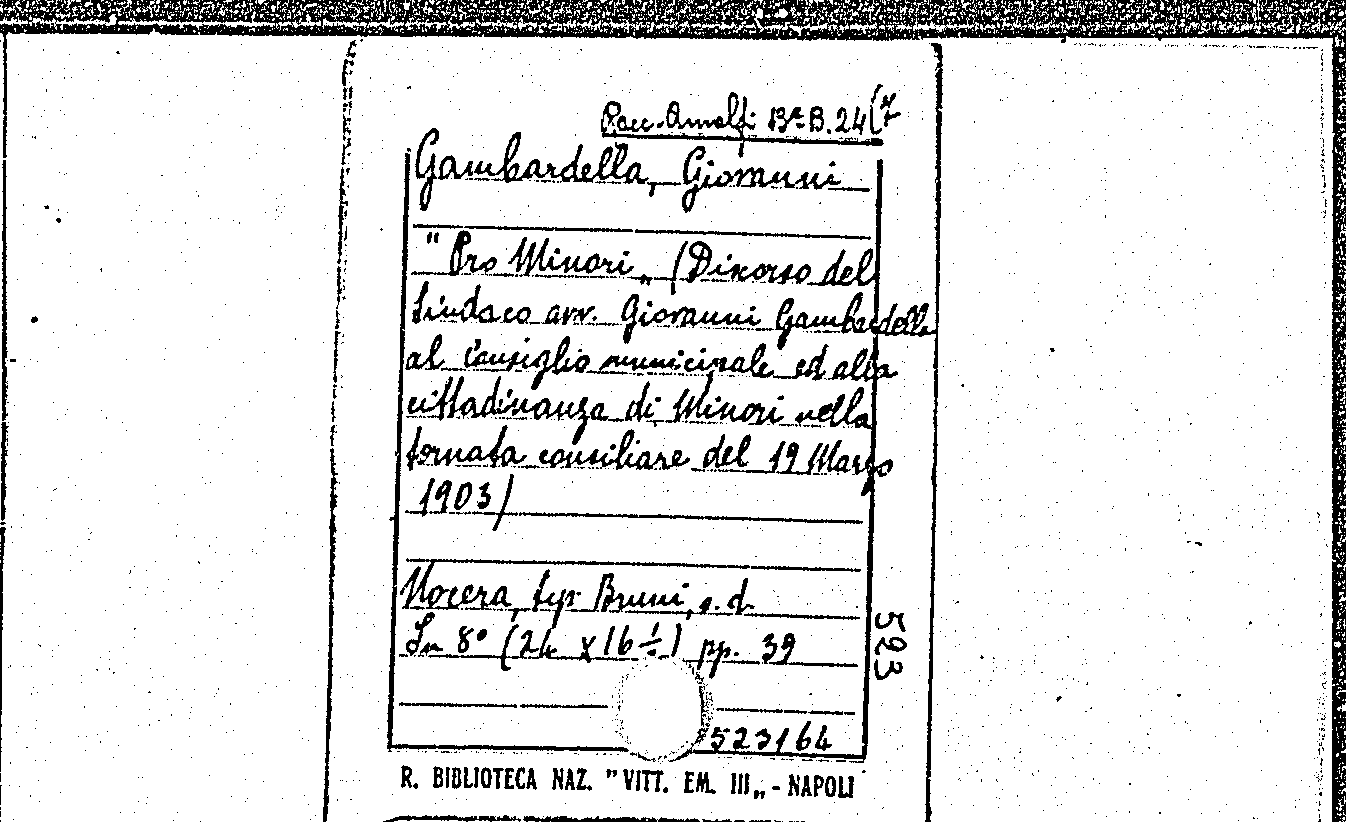 Racc. Amalfi Bª B. 24(7
Gambardella, Giovanni
"Pro Minori„ (Discorso del
Sindaco avv. Giovanni Gambardella
al Consiglio municipale ed alla
cittadinanza di Minori nella
tornata consiliare del 19 Marzo
1903)
Nocera, typ. Bruni, s. d.
In 8° (24 x 16 ½) pp. 39
593
523164
R. BIBLIOTECA NAZ. "VITT. EM. III„ - NAPOLI